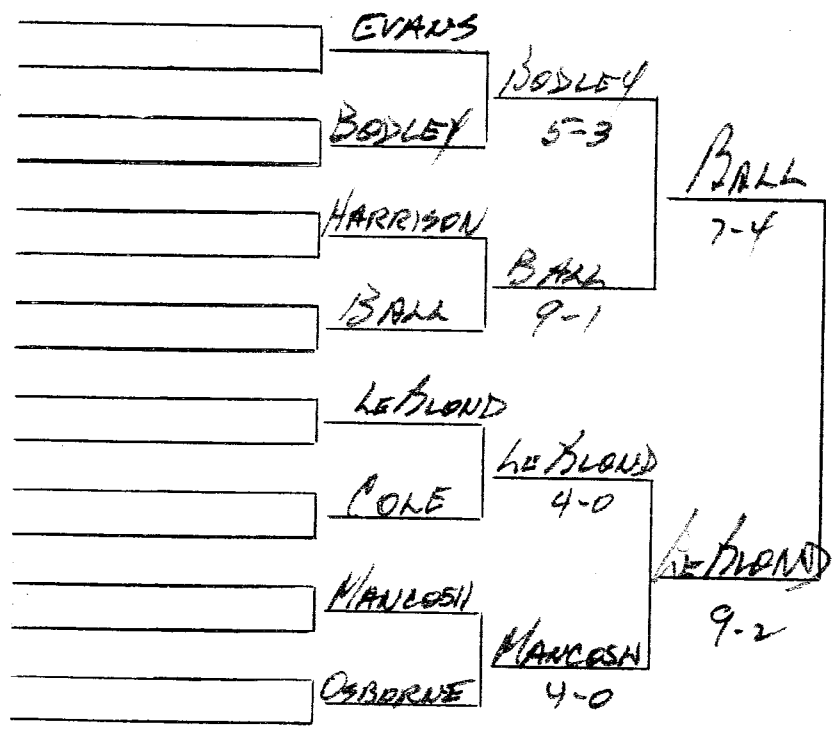 EVANS
BODLEY
HARRISON
BALL
LEBLOND
COLE
MANCOSH
OSBORNE
BODLEY
5-3
BALL
9-1
LEBLOND
4-0
MANCOSH
4-0
BALL
7-4
LEBLOND
9-2